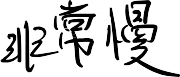 非常慢